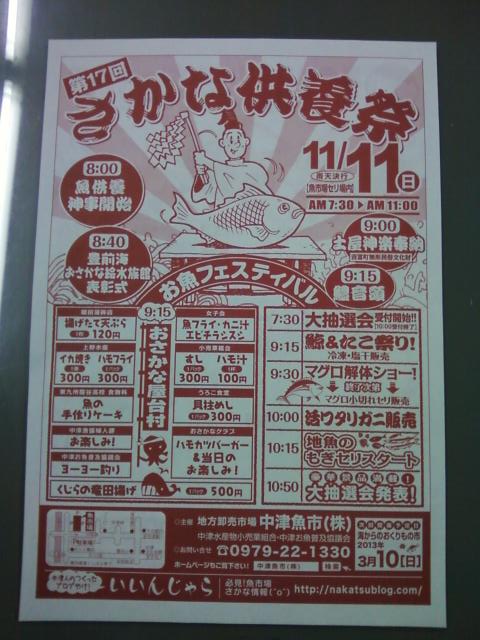 第17回
さかな供養祭
11/11(日)
雨天決行
【魚市場セリ場内】
AM 7:30 ▶ AM 11:00
8:00
魚供養
神事開始
8:40
豊前海
おさかな絵水族館
表彰式
9:00
土屋神楽奉納
9:15
鱧音頭
お魚フェスティバル
9:15
おさかな屋台村
揚げたて天ぷら
120円
上野水産
イカ焼き
300円
ハモフライ
300円
東九州龍谷高校 食物科
魚の
手作りケーキ
中津漁協婦人部
お楽しみ!
中津お魚普及協議会
ヨーヨー釣り
くじらの竜田揚げ
1パック 500円
女子会
魚フライ・カニ汁
エビチランスシ
小売業組合
すし
1パック
300円
ハモ汁
1杯
100円
うろこ食堂
貝柱めし
1パック 300円
おさかなクラブ
ハモカツバーガー
&当日の
お楽しみ!
7:30 大抽選会 受付開始!!
[10:00受付終了]
9:15 鯨&たこ祭り!
冷凍・塩干販売
9:30 マグロ解体ショー!
終了次第
マグロ小切れセリ販売
10:00 活ワタリガニ販売
10:15 地魚の
もぎセリスタート
豪華景品満載!
10:50 大抽選会発表!
○主催 地方卸売市場 中津魚市(株)
中津水産物小売業組合・中津お魚普及協議会
○お問い合せ ☎0979-22-1330
ホームページもご覧下さい! 中津魚市(株) 検索
次回開催予告
海からのおくりもの市
2013年
3月10[日]
中津人のつくった
ブログやけ!
いいんじゃら
必見!魚市場
さかな情報(^o^)
http://nakatsublog.com/